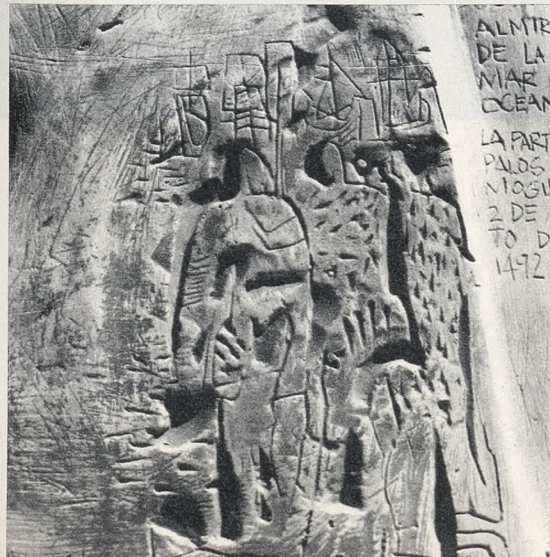 ALMIR
DE LA
MAR
OCEAN
LA PART
PALOS
MOGU
2 DE
TO D
1492